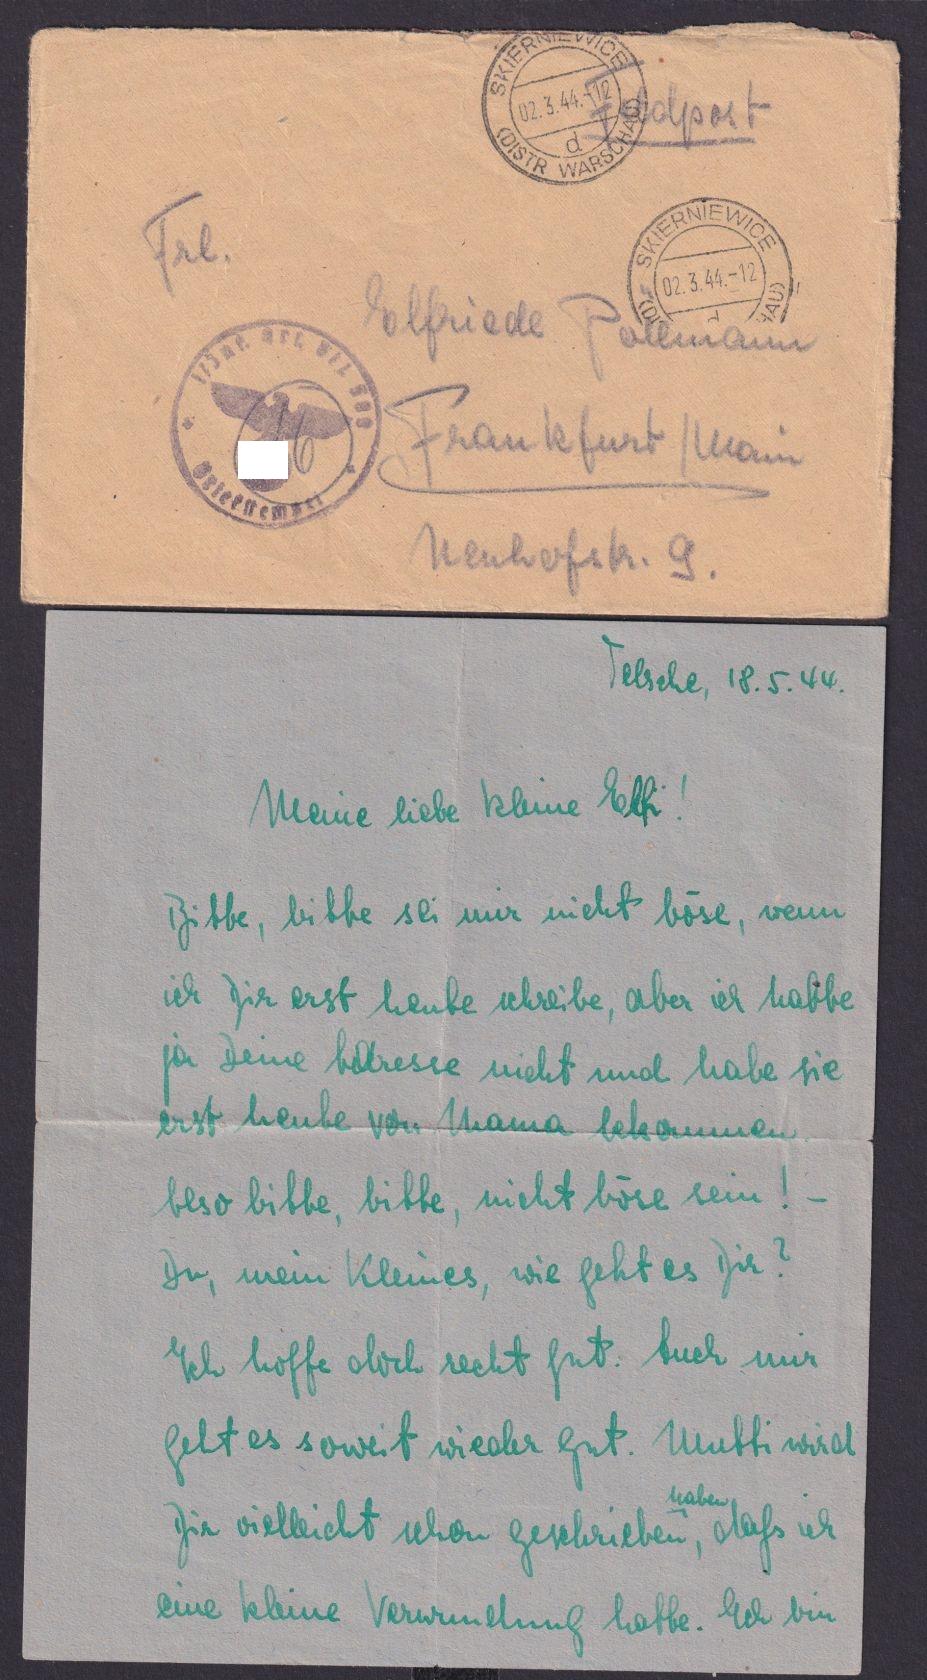 SKIERNIEWICE
02.3.44.-12
d
(DISTR WARSCHAU)
Feldpost
SKIERNIEWICE
02.3.44.-12
d
Frl.
Elfriede Pollmann
Frankfurt/Main
Neuhofstr. 9.
Briefstempel
Telsche, 18.5.44.
Meine liebe kleine Elfi!
Bitte, bitte sei mir nicht böse, wenn
ich Dir erst heute schreibe, aber ich hatte
ja Deine Adresse nicht und habe sie
erst heute von Mama bekommen.
Also bitte, bitte, nicht böse sein! –
Du, mein Kleines, wie geht es Dir?
Ich hoffe doch recht gut. Auch mir
geht es soweit wieder gut. Mutti wird
Dir vielleicht schon geschrieben haben, daß ich
eine kleine Verwundung hatte. Ich bin